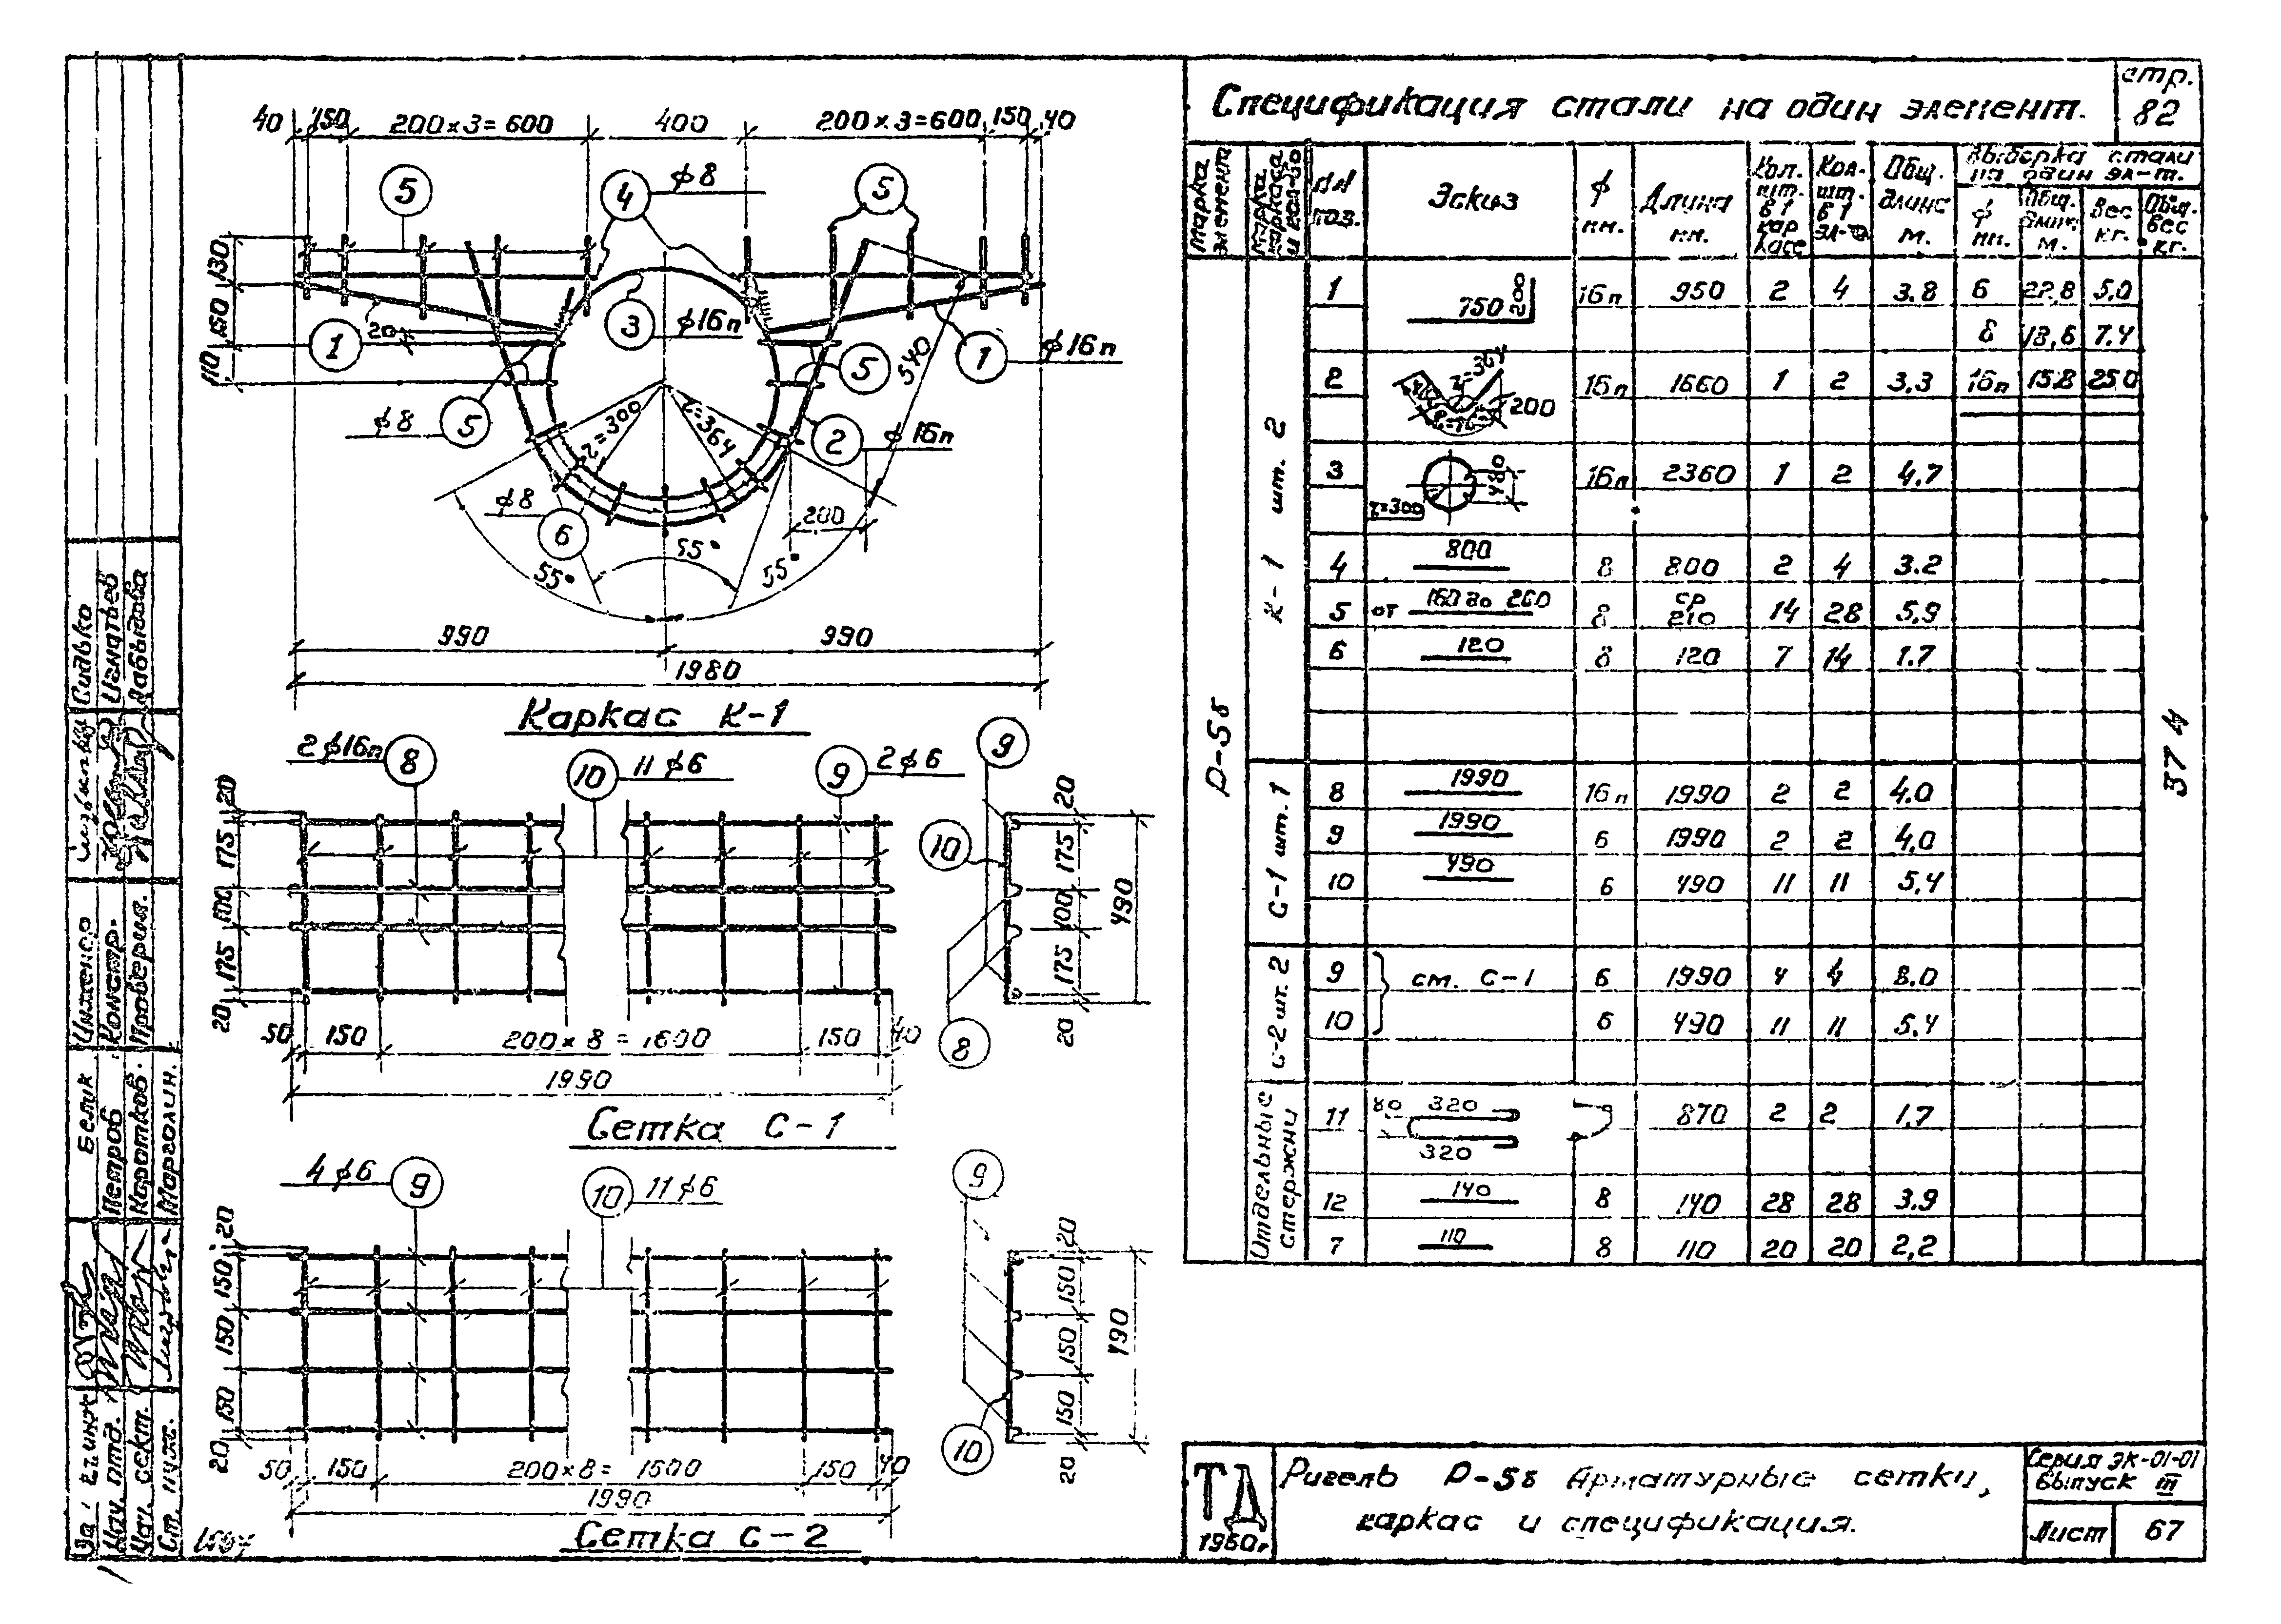 Спецификация стали на один элемент.
стр.
82
Марка элемента
Марка каркаса и кол-во
NN поз.
Эскиз
ф мм.
Длина мм.
Кол. шт. в 1 каркасе
Кол. шт. в 1 эл-те
Общ. длина м.
Выборка стали на один эл-т.
ф мм.
Общ. длин. м.
Вес кг.
Общ. вес кг.
Р-5б
К-1 шт. 2
1 750 200 16п 950 2 4 3.8 6 22,8 5,0
8 18,6 7,4
2 200 16п 1660 1 2 3.3 16п 15,8 25,0
3 r=300 480 16п 2360 1 2 4.7
4 800 8 800 2 4 3.2
5 от 160 до 260 8 ср 210 14 28 5.9
6 120 8 120 7 14 1.7
37,4
С-1 шт. 1
8 1990 16п 1990 2 2 4.0
9 1990 6 1990 2 2 4.0
10 490 6 490 11 11 5,4
С-2 шт. 2
9 см. С-1 6 1990 4 4 8.0
10 6 490 11 11 5.4
Отдельные стержни
11 80 320 320 870 2 2 1,7
12 140 8 140 28 28 3.9
7 110 8 110 20 20 2,2
40 150 200х3=600 400 200х3=600 150 40
5 4 ф8 5
130 150 110
1 20 3 ф16п 5 540 1 ф16п
ф8 5 r=300 r=364 2 ф16п
ф8 6 200
55° 55° 55°
990 990
1980
Каркас К-1
2ф16п 8 10 11ф6 9 2ф6 9
20 175 100 175 20
10 8
20 175 100 175 20 490
50 150 200х8=1600 150 40
1990
Сетка С-1
4ф6 9 10 11ф6 9
20 150 150 150 20
10
20 150 150 150 20 490
50 150 200х8=1600 150 40
1990
Сетка С-2
Сидько
Игнатьев
Давыдова
Инженер
Констр.
Проверил.
Белик
Петров
Коротков.
Марголин.
Нач. отд.
Нач. сект.
Ст. инж.
ТД
1960г
Ригель Р-5б Арматурные сетки,
каркас и спецификация.
Серия ЭК-01-01
Выпуск III
Лист 67